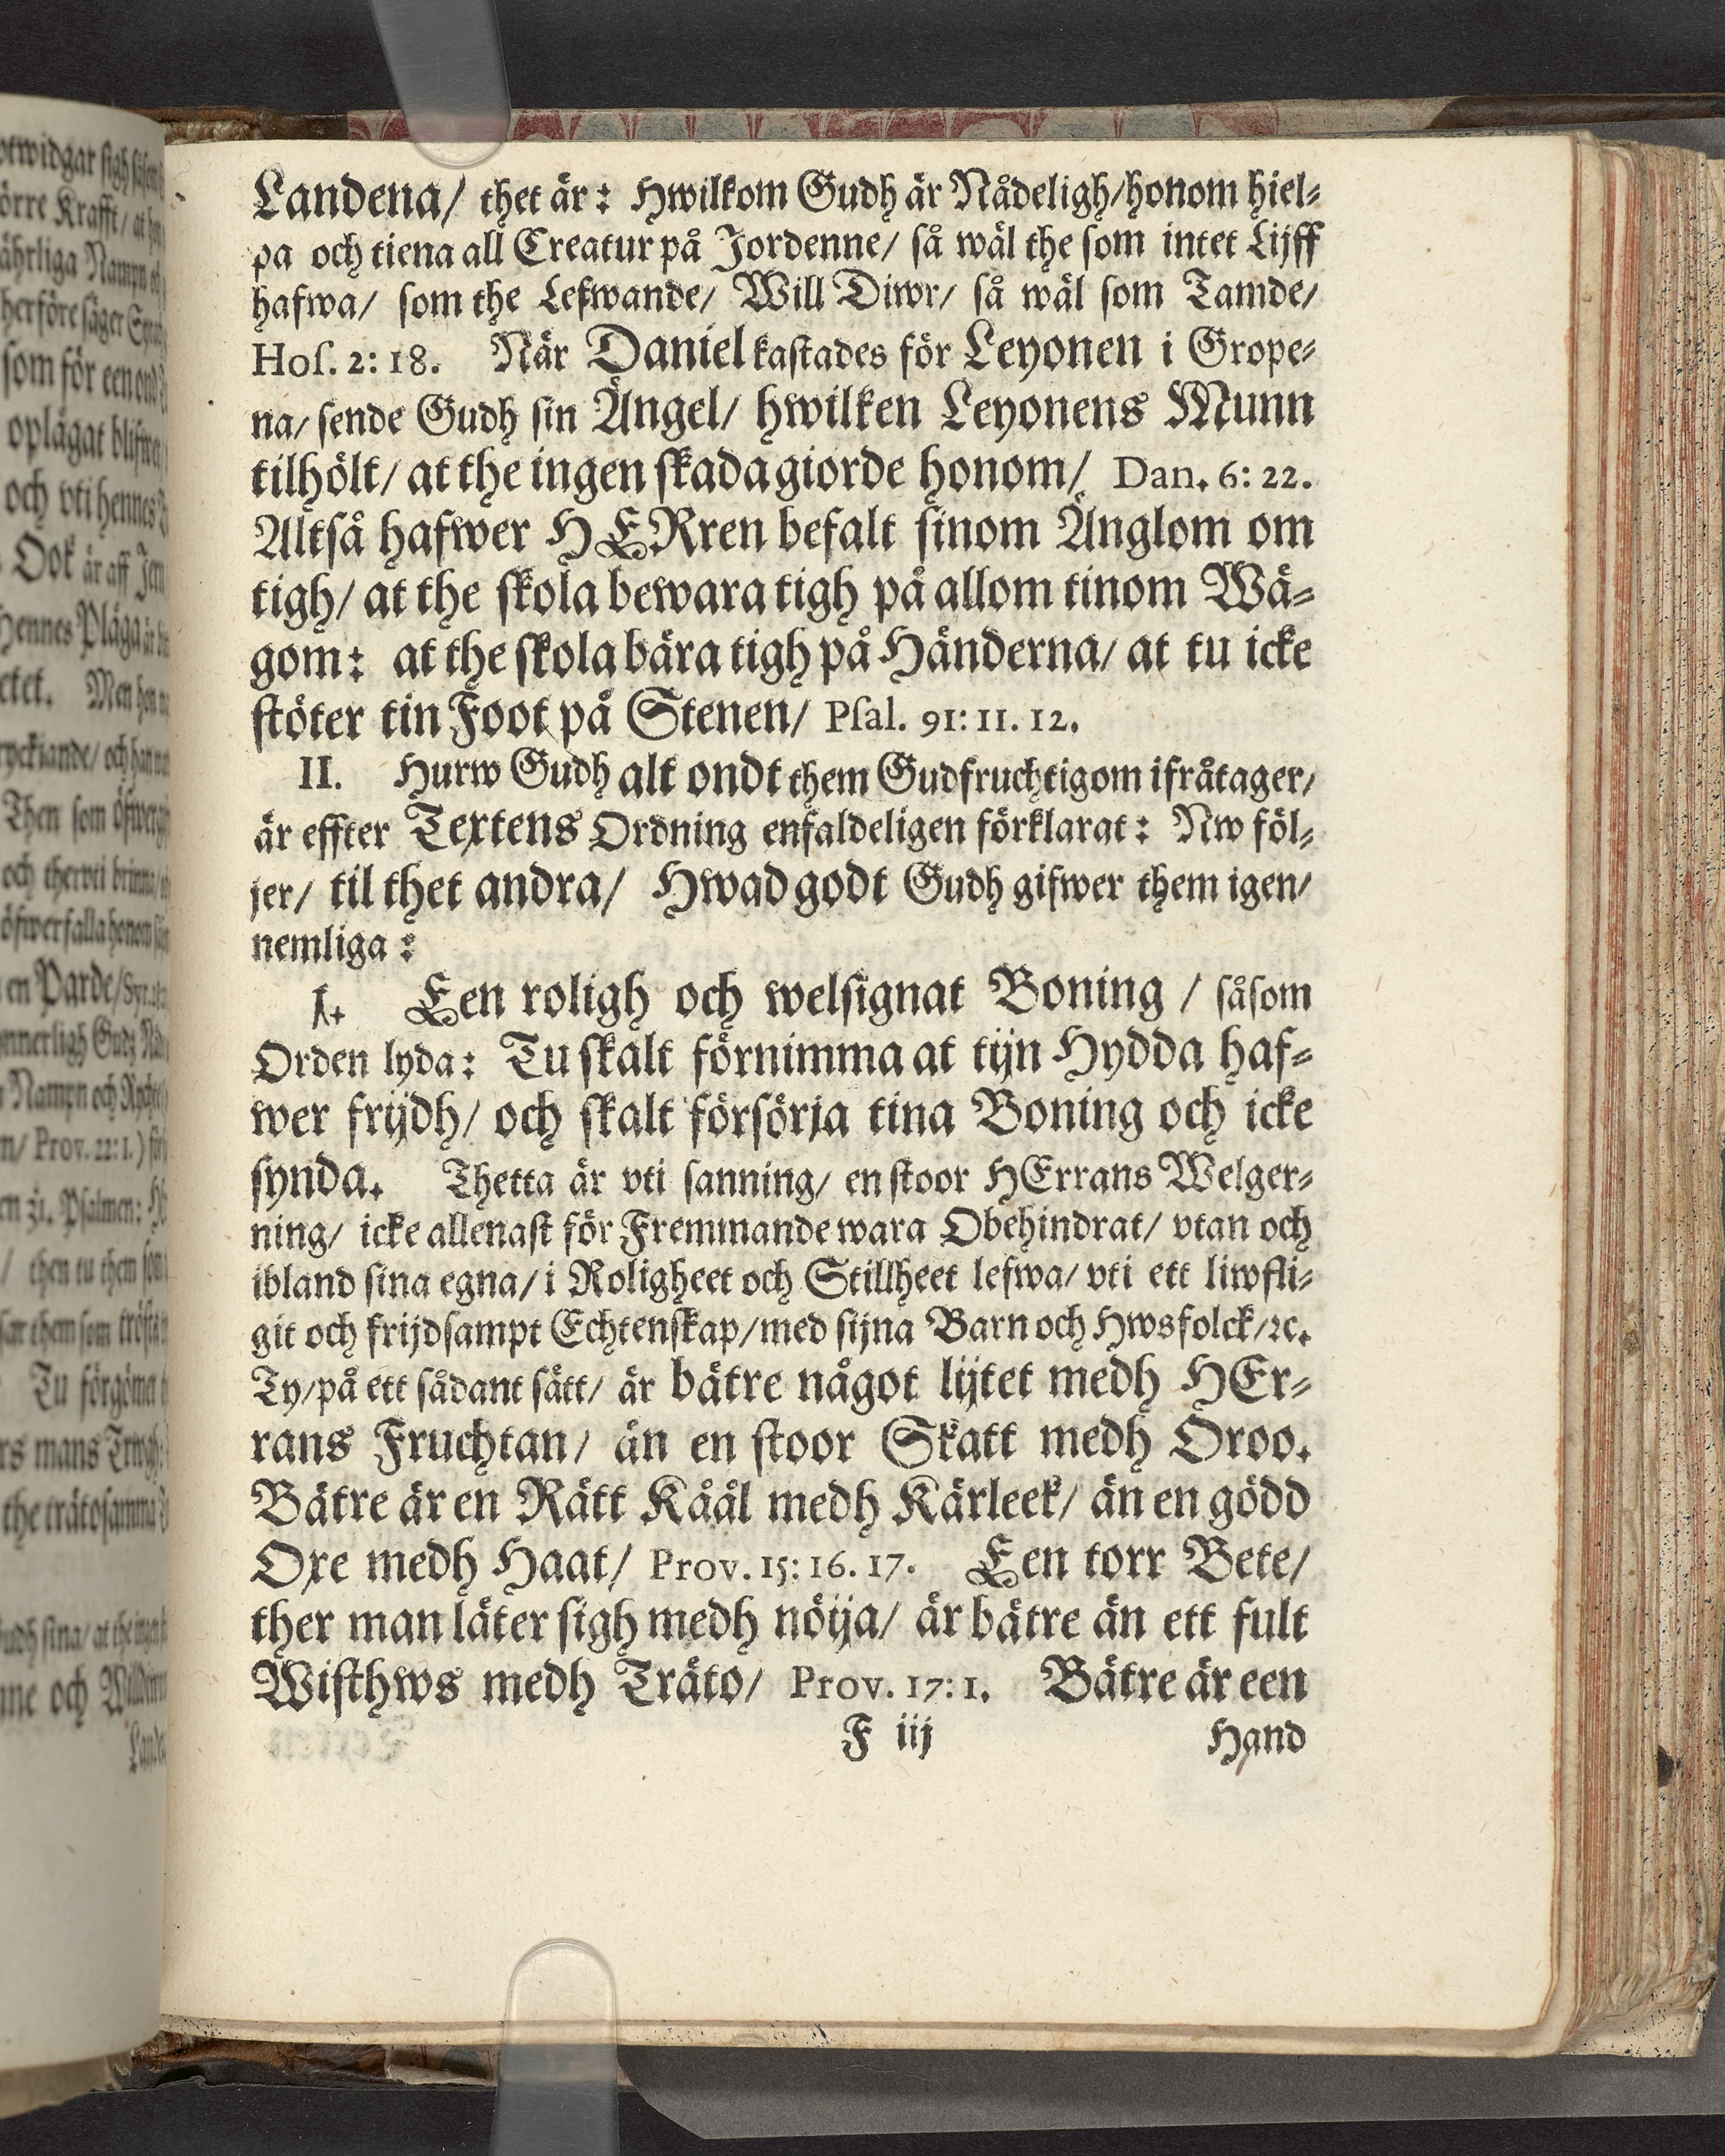 Landena/ thet är: Hwilkom Gudh är Nådeligh/honom hiel-
pa och tiena all Creatur på Jordenne/ så wäl the som intet Lijff
hafwa/ som the Lefwande/ Will Diwr/ så wäl som Tamde/
Hos. 2: 18. När Daniel kastades för Leyonen i Grope-
na/ sende Gudh sin Ängel/ hwilken Leyonens Munn
tilhölt/ at the ingen skada giorde honom/ Dan. 6: 22.
Altså hafwer HERren befalt sinom Änglom om
tigh/ at the skola bewara tigh på allom tinom Wä-
gom: at the skola bära tigh på Händerna/ at tu icke
stöter tin Foot på Stenen/ Psal. 91: 11. 12.
II. Hurw Gudh alt ondt them Gudfruchtigom ifråtager/
är effter Textens Ordning enfaldeligen förklarat: Nw föl-
jer/ til thet andra/ Hwad godt Gudh gifwer them igen/
nemliga:
1. Een roligh och welsignat Boning / såsom
Orden lyda: Tu skalt förnimma at tijn Hydda haf-
wer frijdh/ och skalt försörja tina Boning och icke
synda. Thetta är vti sanning/ en stoor HErrans Welger-
ning/ icke allenast för Fremmande wara Obehindrat/ vtan och
ibland sina egna/ i Roligheet och Stillheet lefwa/ vti ett liwfli-
git och frijdsampt Echtenskap/med sijna Barn och Hwsfolck/ꝛc.
Ty/på ett sådant sätt/ är bätre något lijtet medh HEr-
rans Fruchtan/ än en stoor Skatt medh Oroo.
Bätre är en Rätt Kåål medh Kärleek/ än en gödd
Oxe medh Haat/ Prov. 15: 16. 17. Een torr Bete/
ther man läter sigh medh nöija/ är bätre än ett fult
Wisthws medh Träto/ Prov. 17: 1. Bätre är een
F iij Hand